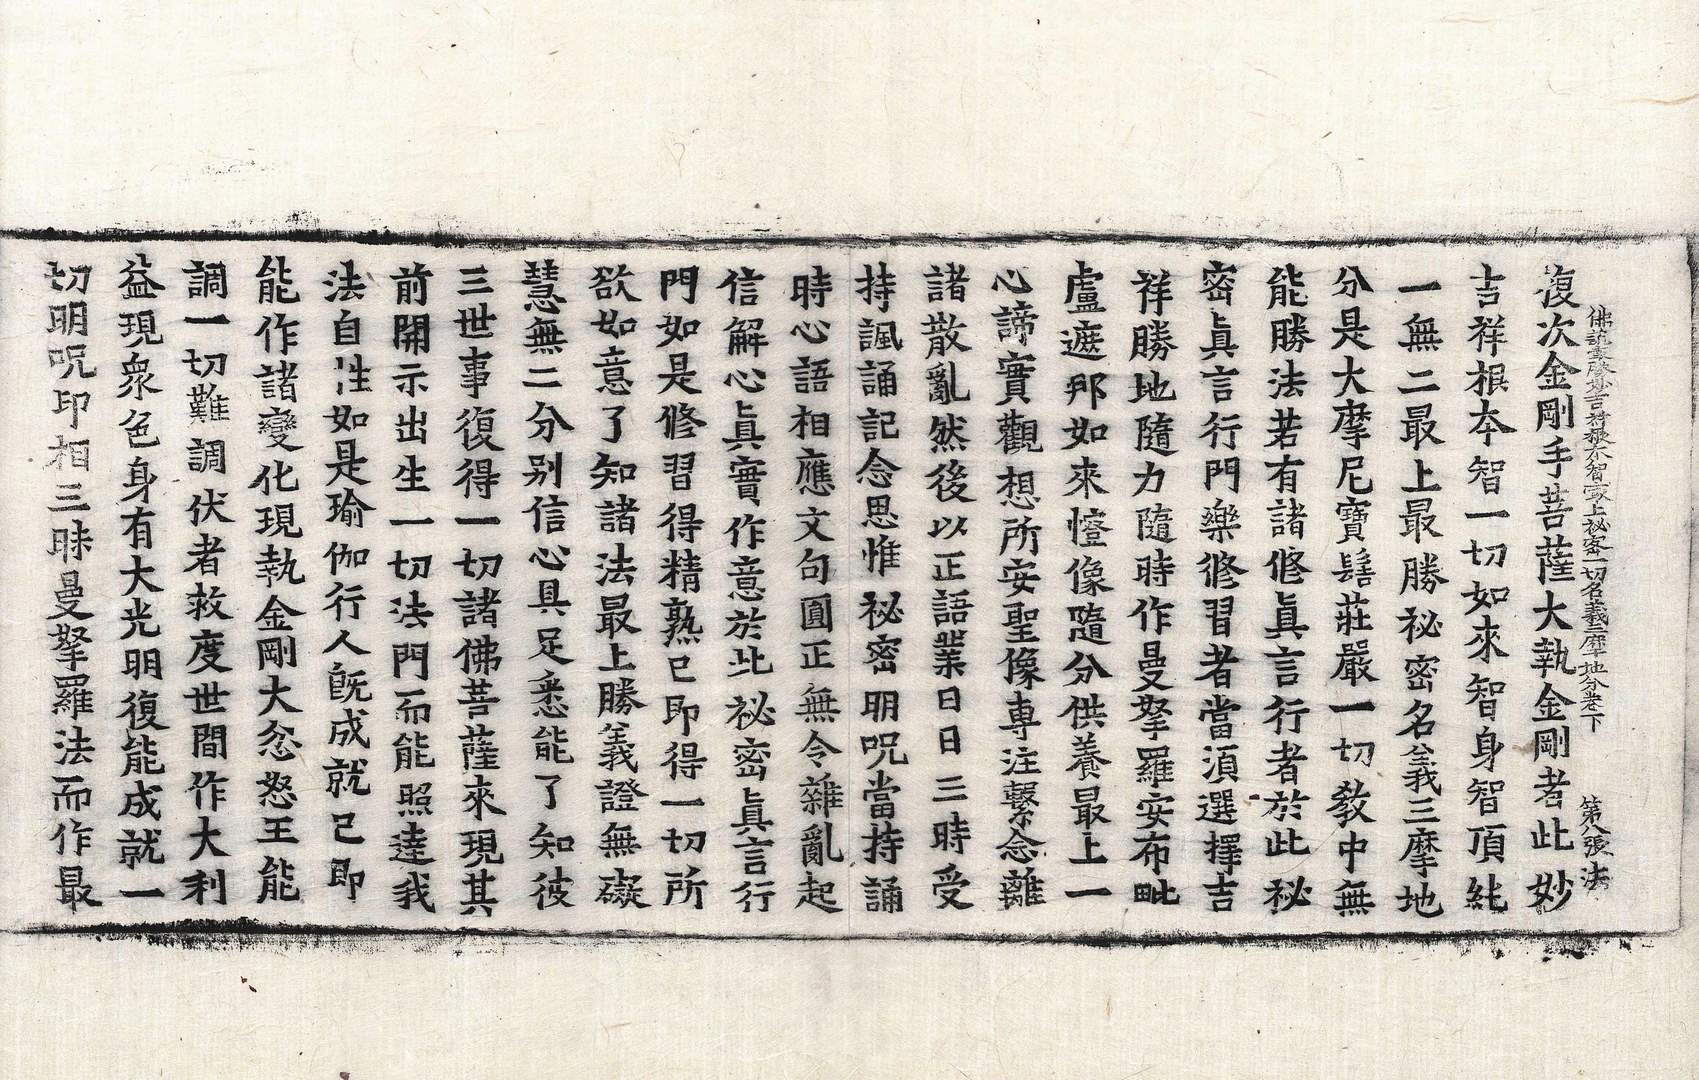 佛說最勝妙吉祥根本智最上祕密一切名義三摩地分卷下　第八張　法
復次金剛手菩薩大執金剛者此妙
吉祥根本智一切如來智身智頂純
一無二最上最勝祕密名義三摩地
分是大摩尼寶髻莊嚴一切教中無
能勝法若有諸修眞言行者於此祕
密眞言行門樂修習者當須選擇吉
祥勝地隨力隨時作曼拏羅安布毗
盧遮那如來㡧像隨分供養最上一
心諦實觀想所安聖像專注繫念離
諸散亂然後以正語業日日三時受
持諷誦記念思惟祕密明呪當持誦
時心語相應文句圓正無令雜亂起
信解心眞實作意於此祕密眞言行
門如是修習得精熟已即得一切所
欲如意了知諸法最上勝義證無礙
慧無二分別信心具足悉能了知彼
三世事復得一切諸佛菩薩來現其
前開示出生一切法門而能照達我
法自性如是瑜伽行人旣成就已即
能作諸變化現執金剛大忿怒王能
調一切難調伏者救度世間作大利
益現衆色身有大光明復能成就一
切明呪印相三昧曼拏羅法而作最